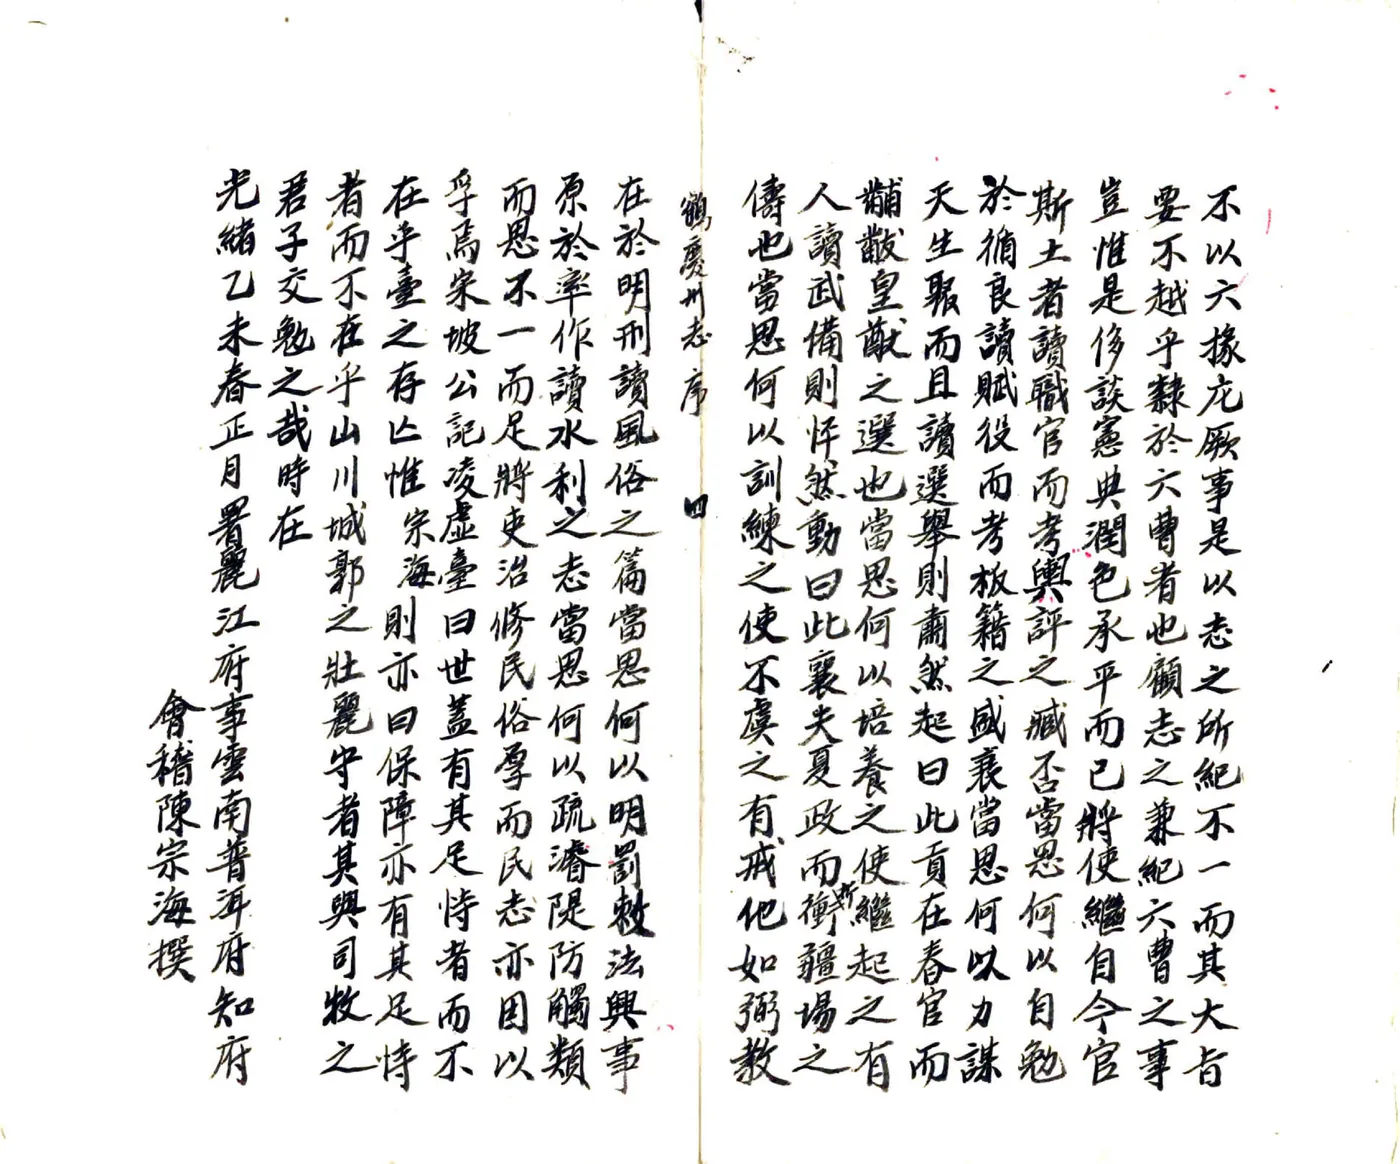 不以六掾庀厥事是以志之所紀不一而其大旨
要不越乎隸於六曹者也顧志之兼紀六曹之事
豈惟是侈談憲典潤色承平而已將使繼自今官
斯土者讀職官而考輿評之臧否當思何以自勉
於循良讀賦役而考板籍之盛衰當思何以力謀
天生聚而且讀選舉則肅然起曰此貢在春官而
黼黻皇猷之選也當思何以培養之使繼起之有
人讀武備則怦然動曰此襄夫夏政而折衝疆場之
儔也當思何以訓練之使不虞之有戒他如弼教
鶴慶州志序 四
在於明刑讀風俗之篇當思何以明罰敕法興事
原於率作讀水利之志當思何以疏濬隄防觸類
而思不一而足將吏治修民俗厚而民志亦因以
孚焉宋坡公記凌虛臺曰世蓋有其足恃者而不
在乎臺之存亾惟宗海則亦曰保障亦有其足恃
者而不在乎山川城郭之壯麗守者其與司牧之
君子交勉之哉時在
光緒乙未春正月署麗江府事雲南普洱府知府
會稽陳宗海撰